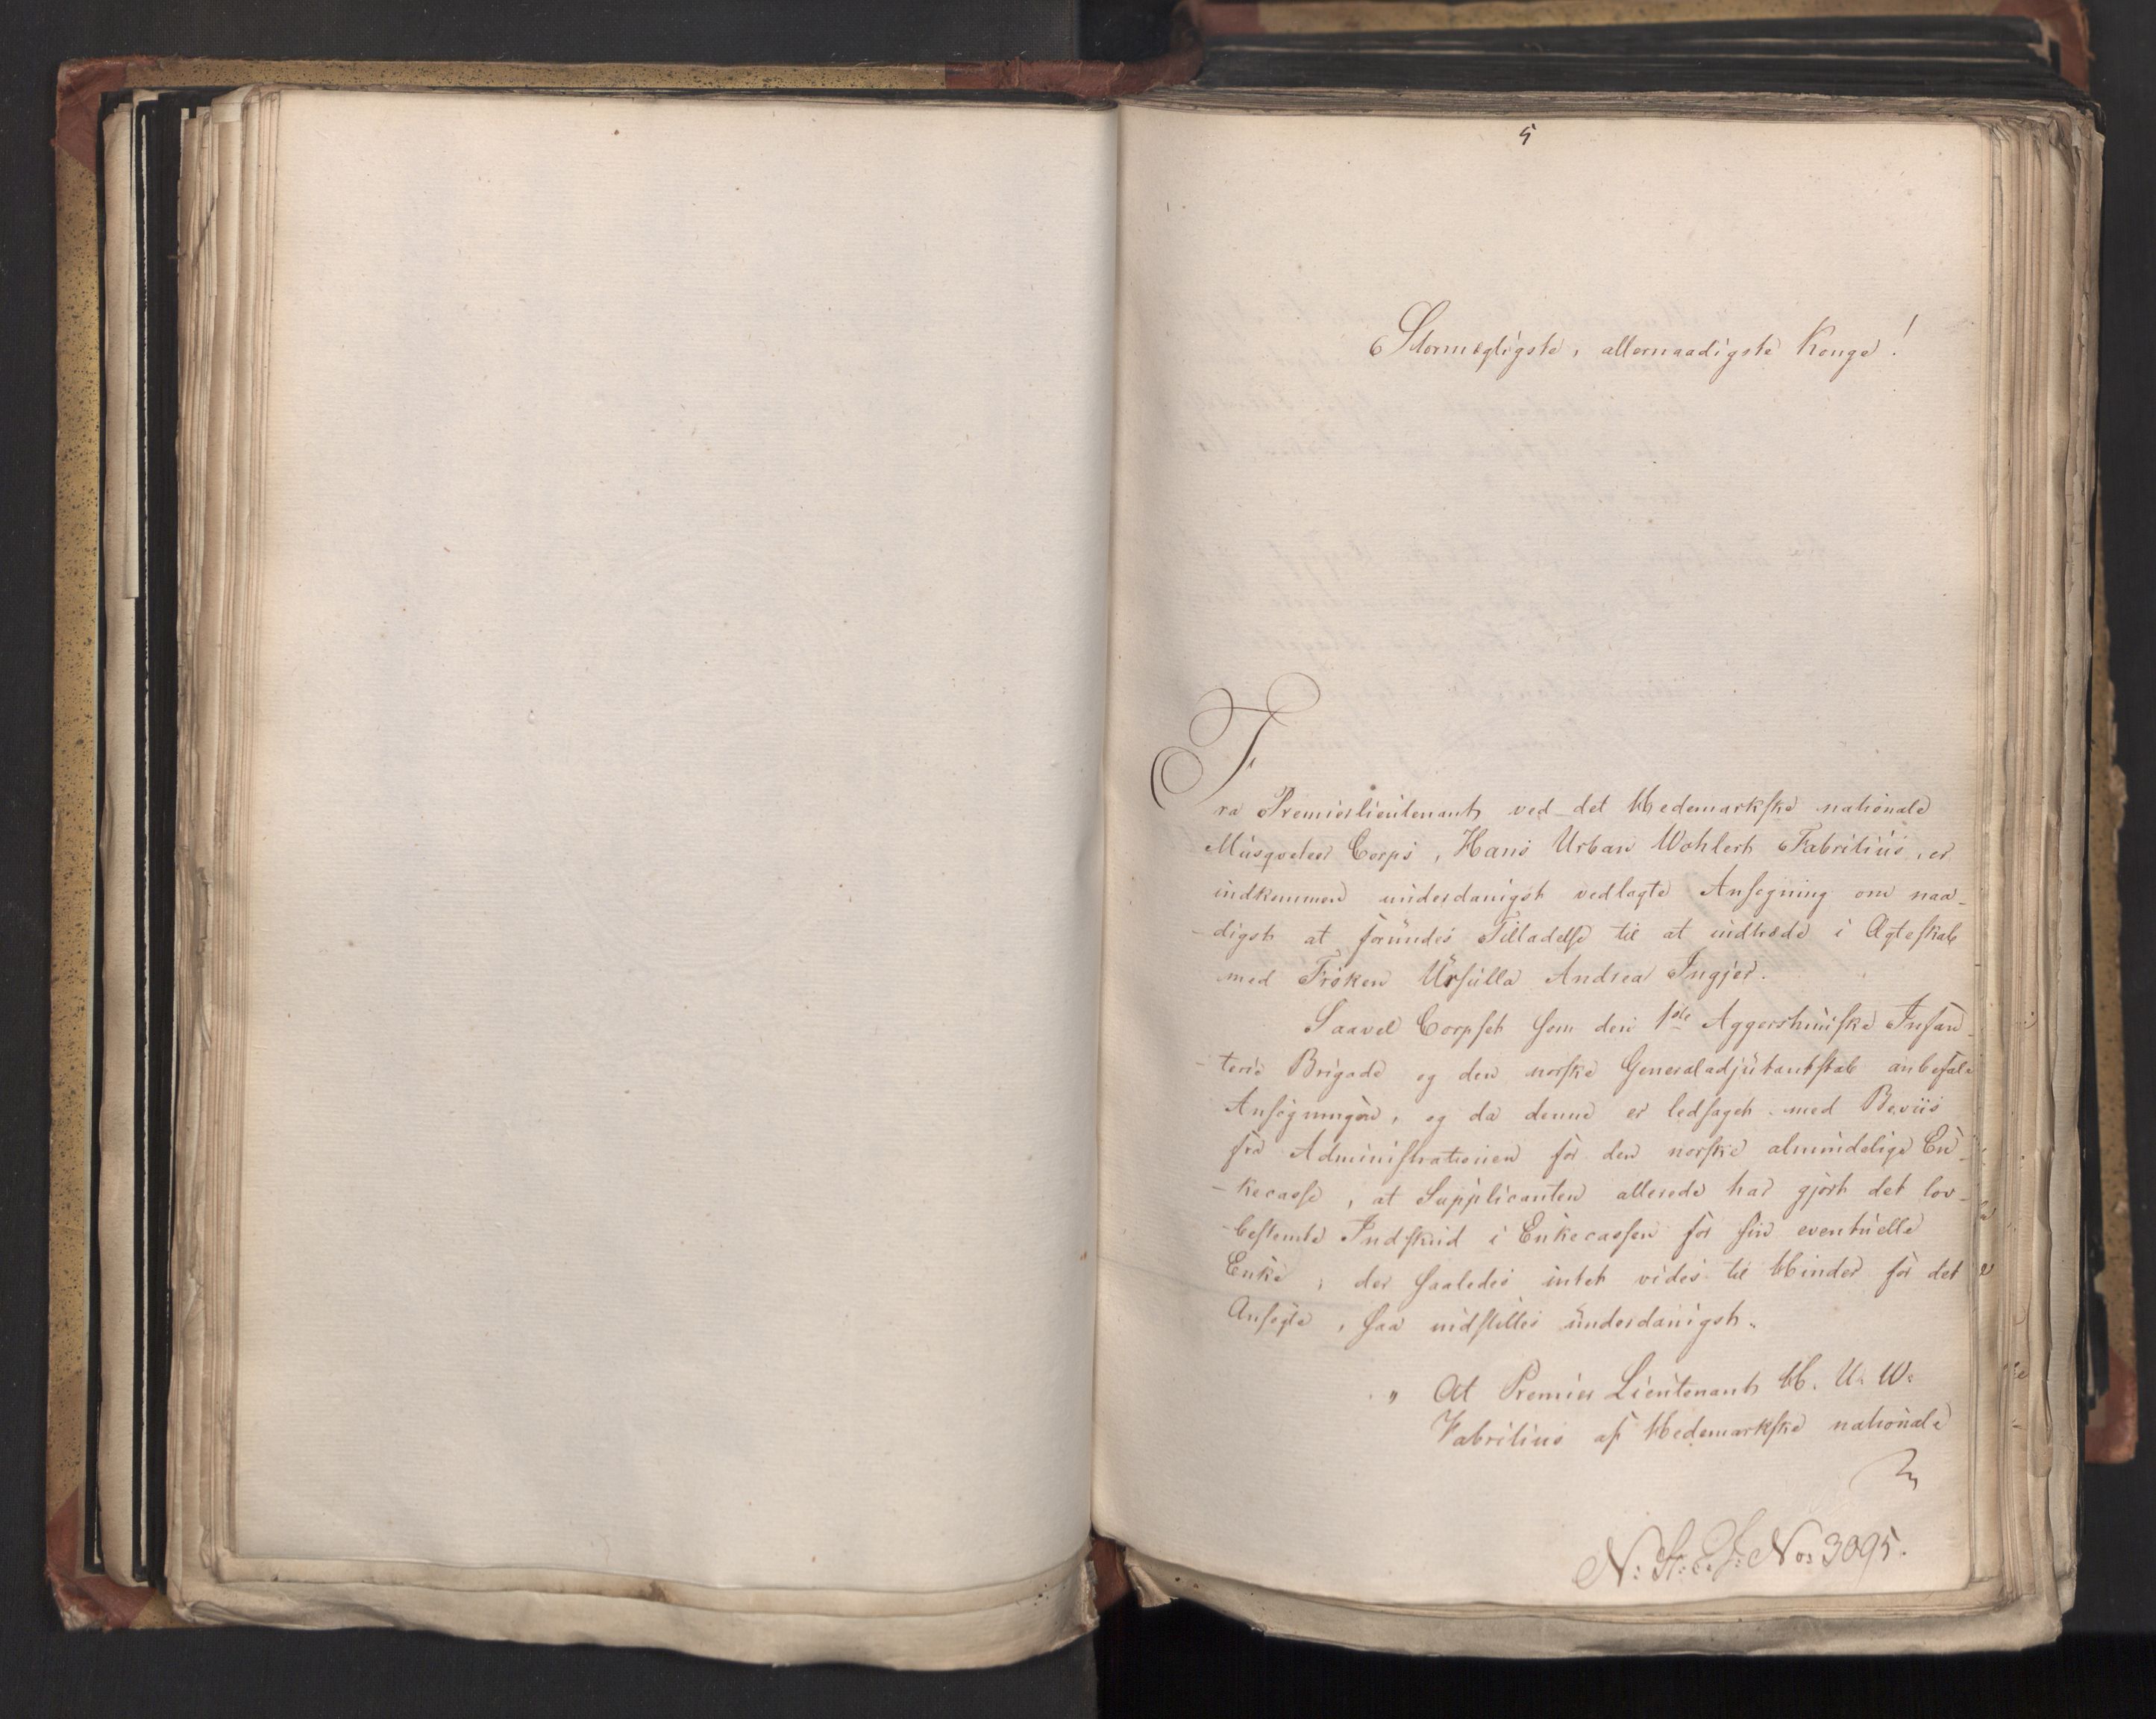 5
Stormægtigste, allernaadigste Konge!
Fra Premierlieutenant ved det Hedemarkske nationale
Musqveteer Corps, Hans Urban Wohlert Fabritius, er
indkommen underdanigst vedlagte Ansøgning om naa-
-digst at forundes Tilladelse til at indtræde i Ægteskab
med Frøken Ursulla Andrea Ingjer.
Saavel Corpset som den 1ste Aggershuusske Infan-
-terie Brigade og den norske Generaladjutantstab anbefale
Ansøgningen, og da denne er ledsaget med Beviis
fra Administrationen for den norske almindelige En-
-kecasse, at Supplicanten allerede har gjort det lov-
-bestemte Indskud i Enkecassen for sin eventuelle
Enke, der saaledes intet vides til Hinder for det
Ansøgte, saa indstilles underdanigst.
" At Premier Lieutenant H. U. W.
Fabritius af Hedemarkske nationale
N: St: E. J: No: 3095.